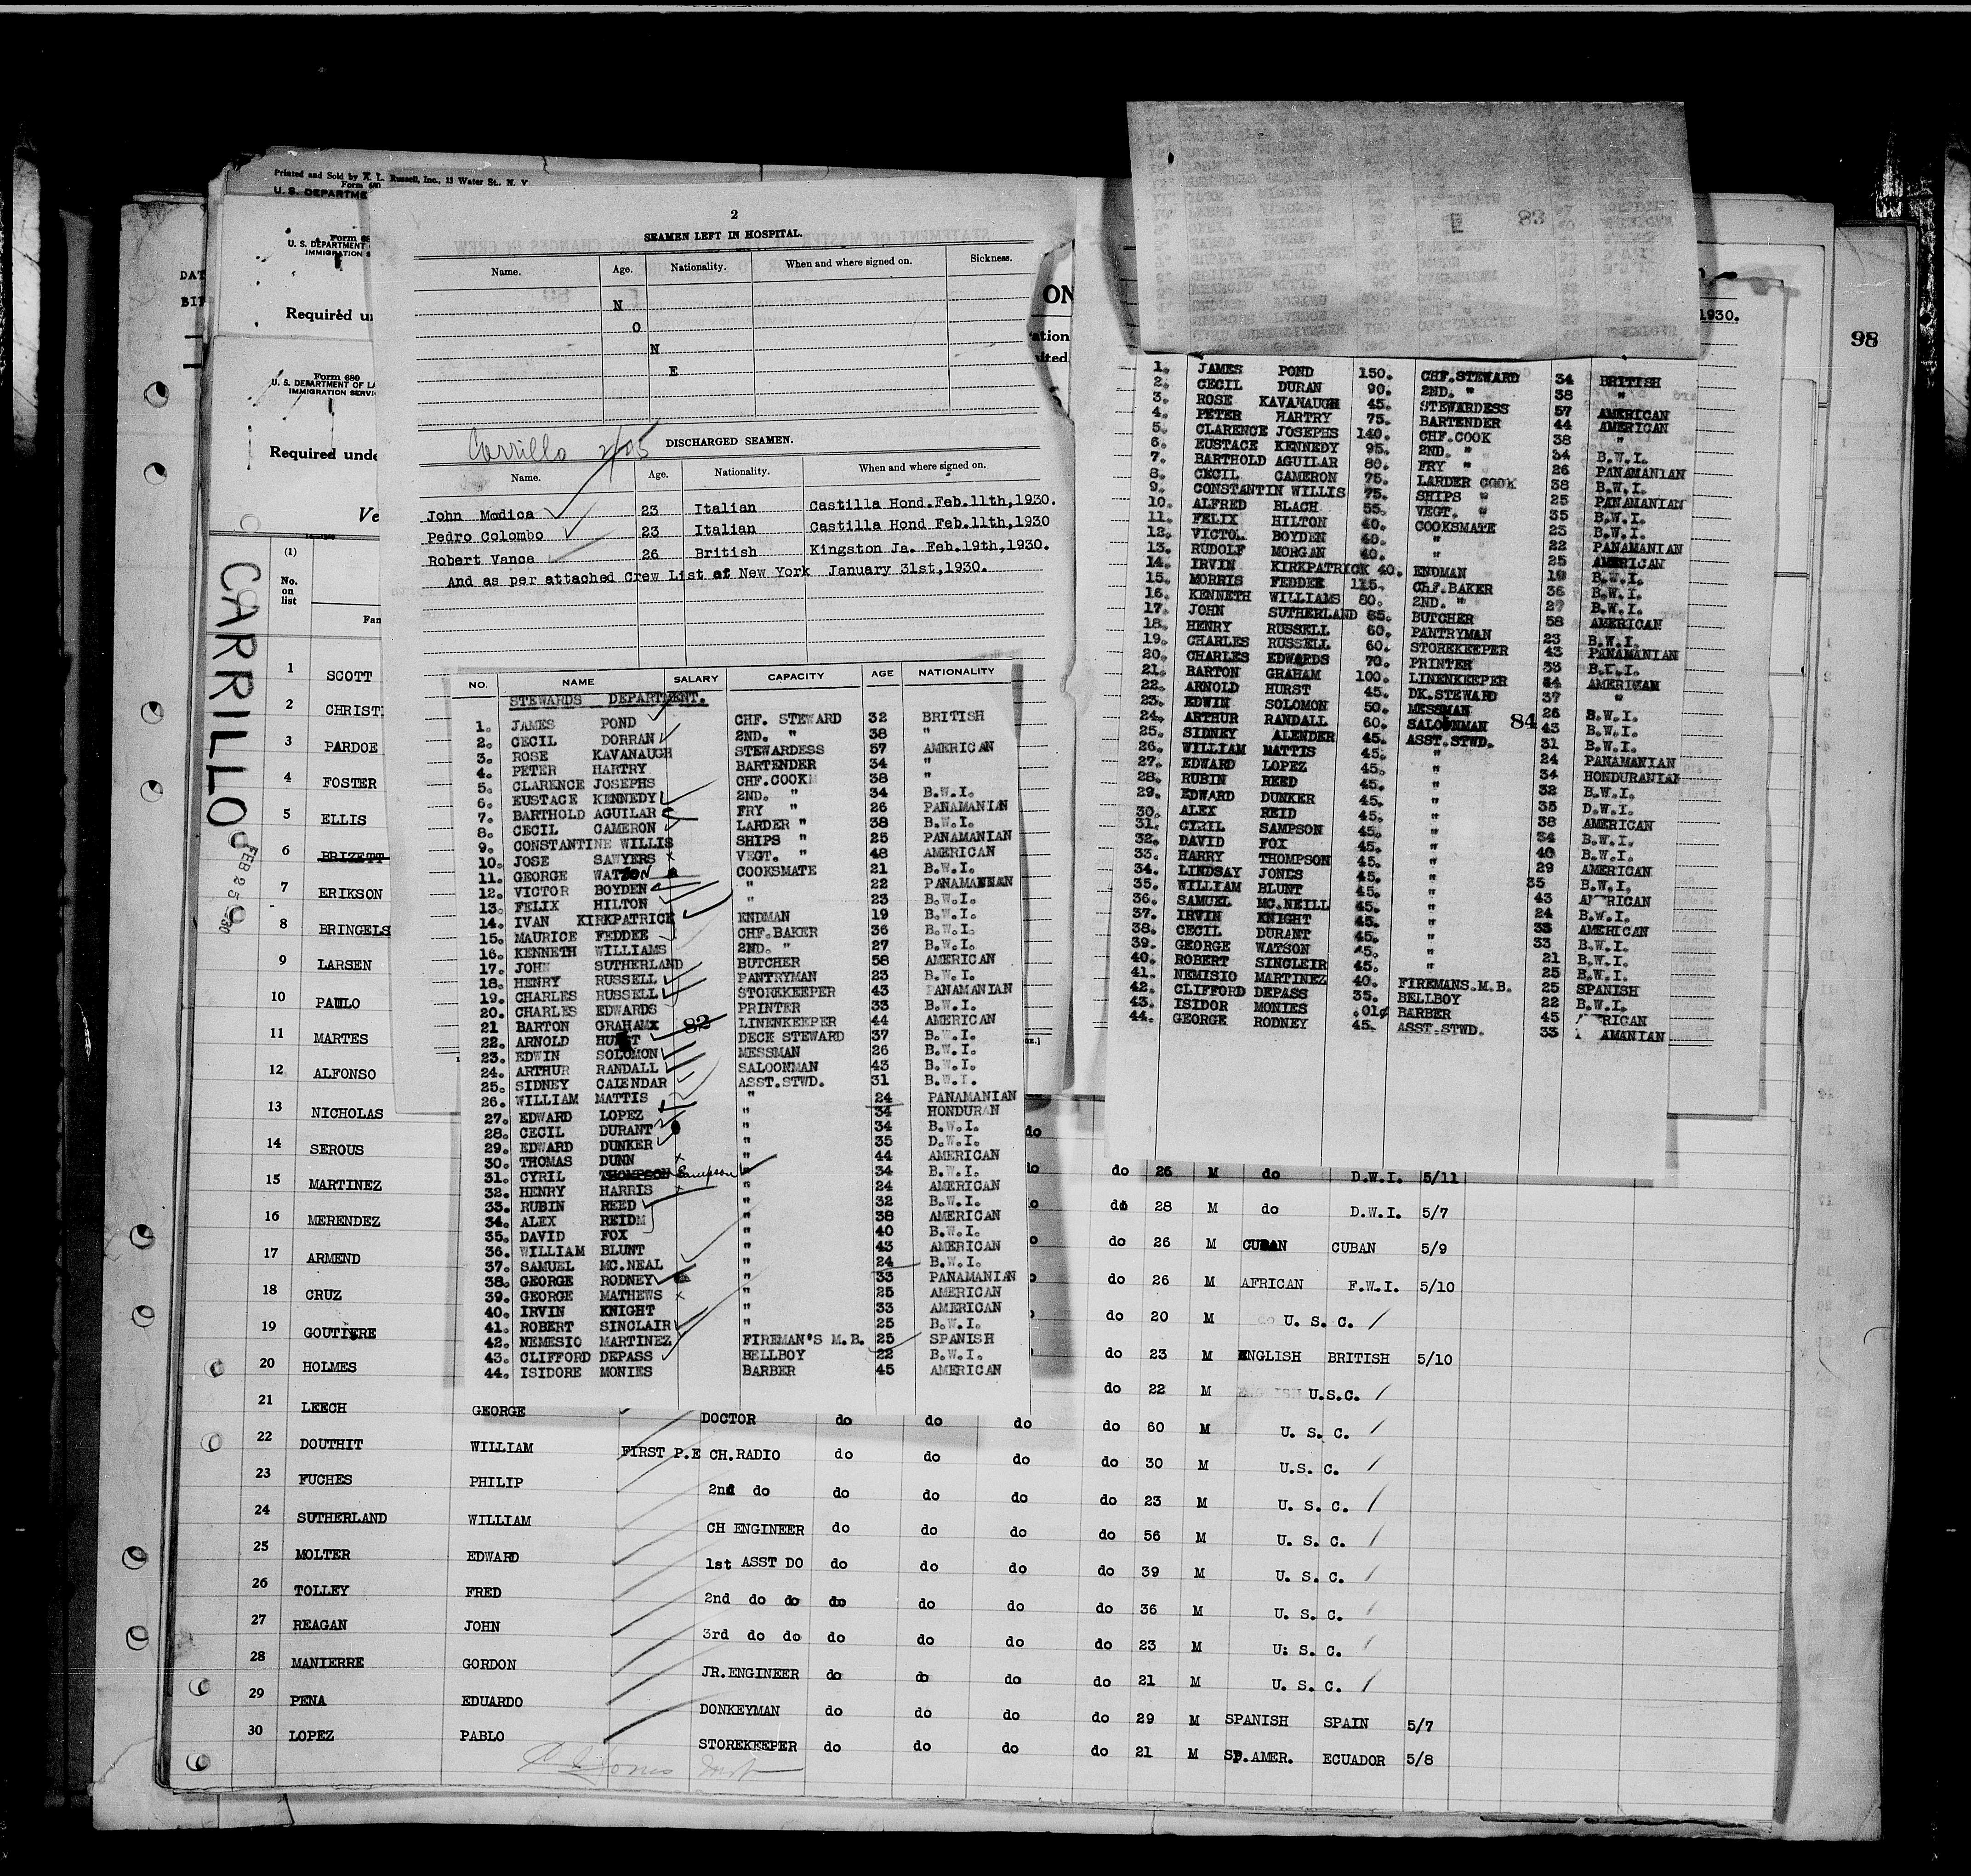 Printed and Sold by R. L. Russell, Inc., 13 Water St., N. Y
Form 680
U. S. DEPARTME
U. S. DEPARTMENT
IMMIGRATION S
DAT
Required un
Form 680
U. S. DEPARTMENT OF LA
IMMIGRATION SERVI
Required unde
Ve
CARRILLO
FEB 25
2
SEAMEN LEFT IN HOSPITAL.
Name. Age. Nationality. When and where signed on. Sickness.
N
O
N
E
Carrillo
DISCHARGED SEAMEN.
Name. Age. Nationality. When and where signed on.
John Modica 23 Italian Castilla Hond.Feb.11th,1930.
Pedro Colombo 23 Italian Castilla Hond Feb.11th,1930
Robert Vance 26 British Kingston Ja. Feb.19th,1930.
And as per attached Crew List of New York January 31st,1930.
NO. NAME SALARY CAPACITY AGE NATIONALITY
STEWARDS DEPARTMENT.
1. JAMES POND CHF. STEWARD 32 BRITISH
2. CECIL DORRAN 2ND. " 38 "
3. ROSE KAVANAUGH STEWARDESS 57 AMERICAN
4. PETER HARTRY BARTENDER 34 "
5. CLARENCE JOSEPHS CHF.COOK 38 "
6. EUSTACE KENNEDY 2ND. " 34 B.W.I.
7. BARTHOLD AGUILAR FRY " 26 PANAMANIAN
8. CECIL CAMERON LARDER " 38 B.W.I.
9. CONSTANTINE WILLIS SHIPS " 25 PANAMANIAN
10. JOSE SAWYERS VEGT. " 48 AMERICAN
11. GEORGE WATSON COOKSMATE 21 B.W.I.
12. VICTOR BOYDEN " 22 PANAMANIAN
13. FELIX HILTON " 23 B.W.I.
14. IVAN KIRKPATRICK ENDMAN 19 B.W.I.
15. MAURICE FEDDEE CHF.BAKER 36 B.W.I.
16. KENNETH WILLIAMS 2ND. " 27 B.W.I.
17. JOHN SUTHERLAND BUTCHER 58 AMERICAN
18. HENRY RUSSELL PANTRYMAN 23 B.W.I.
19. CHARLES RUSSELL STOREKEEPER 43 PANAMANIAN
20. CHARLES EDWARDS PRINTER 33 B.W.I.
21 BARTON GRAHAM 82 LINENKEEPER 44 AMERICAN
22. ARNOLD HURST DECK STEWARD 37 B.W.I.
23. EDWIN SOLOMON MESSMAN 26 B.W.I.
24. ARTHUR RANDALL SALOONMAN 43 B.W.I.
25. SIDNEY CALENDAR ASST.STWD. 31 B.W.I.
26. WILLIAM MATTIS " 24 PANAMANIAN
27. EDWARD LOPEZ " 34 HONDURAN
28. CECIL DURANT " 34 B.W.I.
29. EDWARD DUNKER " 35 D.W.I.
30. THOMAS DUNN " 44 AMERICAN
31. CYRIL THOMPSON Sampson " 34 B.W.I.
32. HENRY HARRIS " 24 AMERICAN
33. RUBIN REED " 32 B.W.I.
34. ALEX REID " 38 AMERICAN
35. DAVID FOX " 40 B.W.I.
36. WILLIAM BLUNT " 43 AMERICAN
37. SAMUEL MC.NEAL " 24 B.W.I.
38. GEORGE RODNEY " 33 PANAMANIAN
39. GEORGE MATHEWS " 25 AMERICAN
40. IRVIN KNIGHT " 33 AMERICAN
41. ROBERT SINCLAIR " 25 B.W.I.
42. NEMESIO MARTINEZ FIREMAN'S M.B. 25 SPANISH
43. CLIFFORD DEPASS BELLBOY 22 B.W.I.
44. ISIDORE MONIES BARBER 45 AMERICAN
83
1930.
98
1. JAMES POND 150. CHF.STEWARD 34 BRITISH
2. CECIL DURAN 90. 2ND. " 38 "
3. ROSE KAVANAUGH 45. STEWARDESS 57 AMERICAN
4. PETER HARTRY 75. BARTENDER 44 AMERICAN
5. CLARENCE JOSEPHS 140. CHF.COOK 38 "
6. EUSTACE KENNEDY 95. 2ND. " 34 B.W.I.
7. BARTHOLD AGUILAR 80. FRY " 26 PANAMANIAN
8. CECIL CAMERON 75. LARDER COOK 38 B.W.I.
9. CONSTANTIN WILLIS 75. SHIPS " 25 PANAMANIAN
10. ALFRED BLACH 55. VEGT. " 35 B.W.I.
11. FELIX HILTON 40. COOKSMATE 23 B.W.I.
12. VICTOR BOYDEN 40. " 22 PANAMANIAN
13. RUDOLF MORGAN 40. " 25 AMERICAN
14. IRVIN KIRKPATRICK 40. ENDMAN 19 B.W.I.
15. MORRIS FEDDEE 115. CHF.BAKER 36 B.W.I.
16. KENNETH WILLIAMS 80. 2ND. " 27 B.W.I.
17. JOHN SUTHERLAND 85. BUTCHER 58 AMERICAN
18. HENRY RUSSELL 60. PANTRYMAN 23 B.W.I.
19. CHARLES RUSSELL 60. STOREKEEPER 43 PANAMANIAN
20. CHARLES EDWARDS 70. PRINTER 33 B.W.I.
21. BARTON GRAHAM 100. LINENKEEPER 44 AMERICAN
22. ARNOLD HURST 45. DK.STEWARD 37 "
23. EDWIN SOLOMON 50. MESSMAN 26 B.W.I.
24. ARTHUR RANDALL 60. SALOONMAN 84 43 B.W.I.
25. SIDNEY ALENDER 45. ASST.STWD. 31 B.W.I.
26. WILLIAM MATTIS 45. " 24 PANAMANIAN
27. EDWARD LOPEZ 45. " 34 HONDURANIAN
28. RUBIN REED 45. " 32 B.W.I.
29. EDWARD DUNKER 45. " 35 D.W.I.
30. ALEX REID 45. " 38 AMERICAN
31. CYRIL SAMPSON 45. " 34 B.W.I.
32. DAVID FOX 45. " 40 B.W.I.
33. HARRY THOMPSON 45. " 29 AMERICAN
34. LINDSAY JONES 45. " 35 B.W.I.
35. WILLIAM BLUNT 45. " 43 AMERICAN
36. SAMUEL MC.NEILL 45. " 24 B.W.I.
37. IRVIN KNIGHT 45. " 33 AMERICAN
38. CECIL DURANT 45. " 33 B.W.I.
39. GEORGE WATSON 45. " 21 B.W.I.
40. ROBERT SINCLEIR 45. " 25 B.W.I.
41. NEMISIO MARTINEZ 40. FIREMANS.M.B. 25 SPANISH
42. CLIFFORD DEPASS 35. BELLBOY 22 B.W.I.
43. ISIDOR MONIES .01¢ BARBER 45 RICAN
44. GEORGE RODNEY 45. ASST.STWD. 33 AMANIAN
(1)
No.
on
list
Fam
1 SCOTT
2 CHRIST
3 PARDOE
4 FOSTER
5 ELLIS
6 BRIZETT
7 ERIKSON
8 BRINGELS
9 LARSEN
10 PAULO
11 MARTES
12 ALFONSO
13 NICHOLAS do
14 SEROUS do do 26 M do D.W.I. 5/11
15 MARTINEZ do 28 M do D.W.I. 5/7
16 MERENDEZ do 26 M CUBAN CUBAN 5/9
17 ARMEND do 26 M AFRICAN F.W.I. 5/10
18 CRUZ do 20 M U. S. C.
19 GOUTIERE do 23 M ENGLISH BRITISH 5/10
20 HOLMES do 22 M U.S.C.
21 LEECH GEORGE DOCTOR do do do do 60 M U. S. C.
22 DOUTHIT WILLIAM FIRST P.E CH.RADIO do do do do 30 M U.S. C.
23 FUCHES PHILIP 2nd do do do do do 23 M U. S. C.
24 SUTHERLAND WILLIAM CH ENGINEER do do do do 56 M U. S. C.
25 MOLTER EDWARD 1st ASST DO do do do do 39 M U. S. C.
26 TOLLEY FRED 2nd do do do do do do 36 M U. S. C.
27 REAGAN JOHN 3rd do do do do do do 23 M U. S. C.
28 MANIERRE GORDON JR.ENGINEER do do do do 21 M U. S. C.
29 PENA EDUARDO DONKEYMAN do do do do 29 M SPANISH SPAIN 5/7
30 LOPEZ PABLO STOREKEEPER do do do do 21 M SP.AMER. ECUADOR 5/8